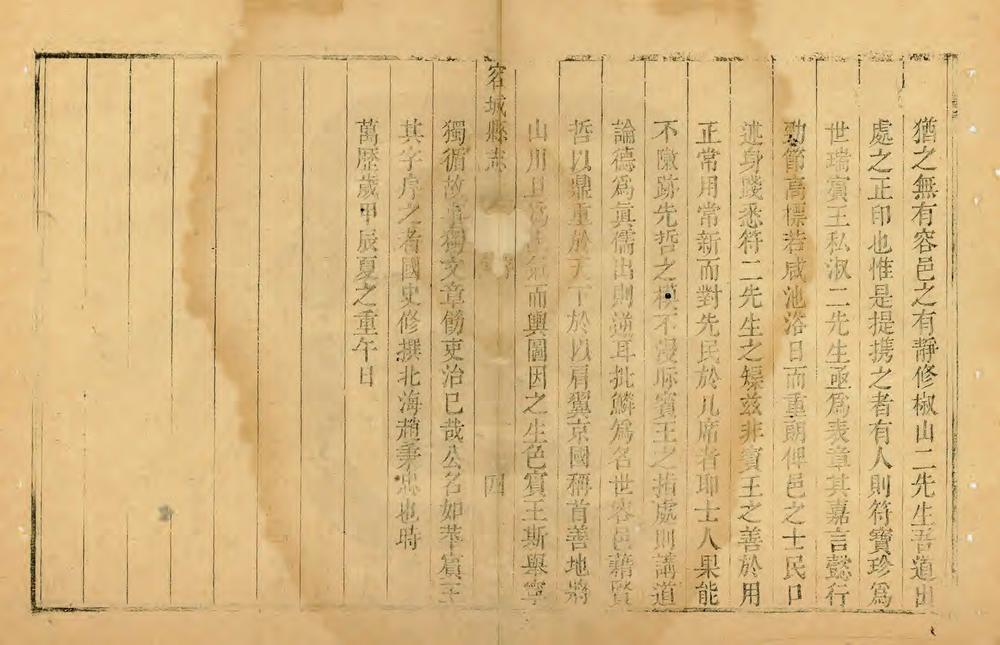 猶之無有容邑之有靜修椒山二先生吾道出
處之正印也惟是提携之者有人則符寶珍爲
世瑞賓王私淑二先生亟爲表章其嘉言懿行
勁節高標若咸池浴日而重朗俾邑之士民口
述身踐悉符二先生之矱兹非賓王之善於用
正常用常新而對先民於几席者耶士人果能
不隳跡先哲之模不漫昹賓王之指處則講道
論德爲眞儒出則逆耳批鱗爲名世容邑藉賢
哲以鼎重於天下於以肩翼京國稱首善地將
山川且而輿圖因之生色賓王斯舉寧
獨循故獨文章飭吏治已哉公名如苹賓王
其字序之者國史修撰北海趙秉忠也時
萬歷歲甲辰夏之重午日
容城縣志
四